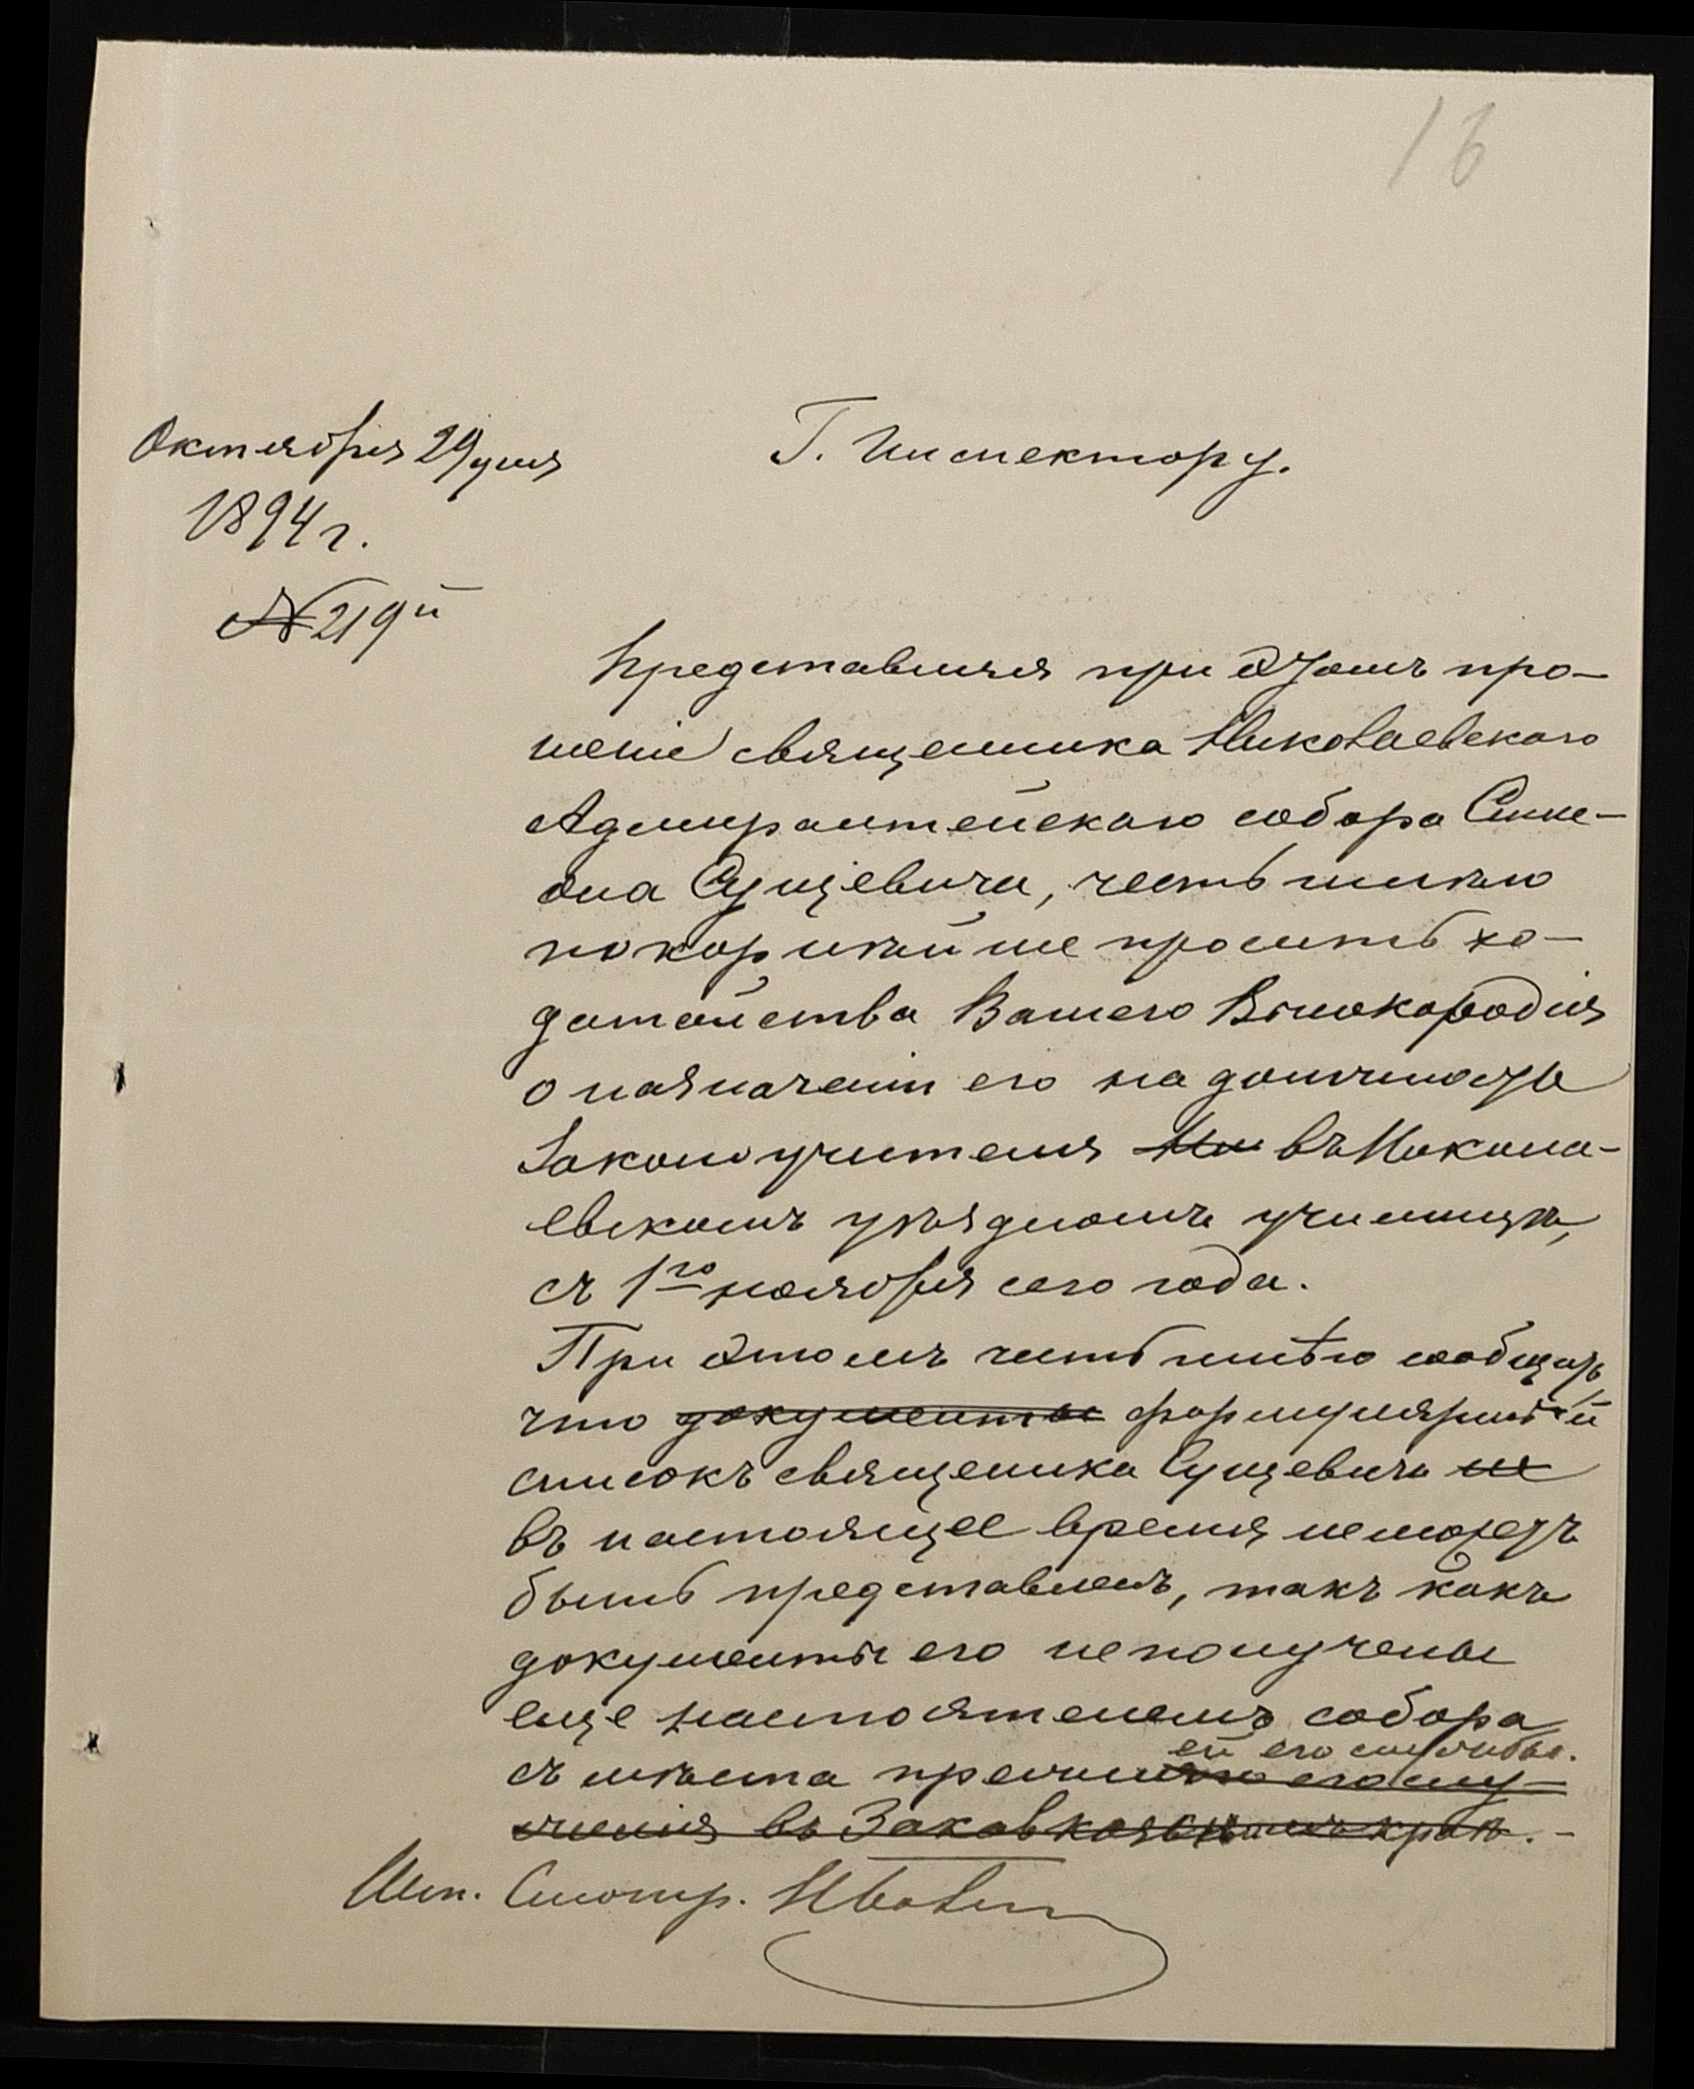 16
Октября 29 дня
1894 г.
№ 219й
Г. Инспектору.
Представляя при этомъ про-
шеніе священника Николаевскаго
Адмиралтейскаго собора Симе-
она Сущевича, честь имѣю
покорнѣйше просить хо-
датайства Вашего Высокородія
о назначеніи его на должность
Законоучителя Ни въ Никола-
евскомъ уѣздномъ училищѣ,
съ 1го ноября сего года.
При этомъ честь имѣю сообщить
что документы формулярный
списокъ священника Сущевича не
въ настоящее время неможетъ
быть представленъ, такъ какъ
документы его не получены
еще настоятелемъ собора
ей его службы.
съ мѣста прежняго его слу-
женія въ Закавказскомъ краѣ. -
Шт. Смотр.